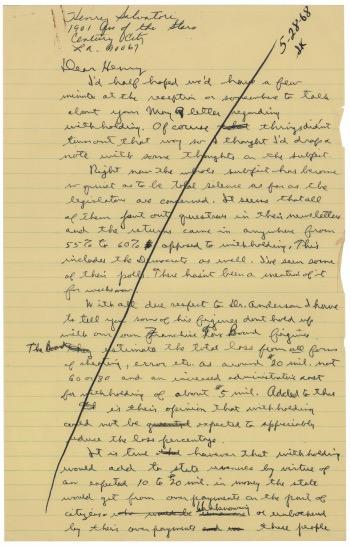 Henry Salvatori
1901 Ave of the Stars
Century City
L.A. 90067
5-28-68
Dear Henry
I'd half hoped we'd have a few
minute at the reception or somewhere to talk
about your May 9 letter regarding
withholding. Of course things didn't
turn out that way so I thought I'd drop a
note with some thoughts on the subject
Right now the whole subject has become
so quiet as to be total silence as far as the
legislators are concerned. It seems that all
of them sent out questions in their newsletters
and the returns came in anywhere from
55% to 60% opposed to withholding. This
includes the Democrats as well. I've seen some
of their polls. There hasn't been a mention of it
for weeks now.
With all due respect to Dr. Anderson I have
to tell you some of his figures don't hold up
with our own Franchise Tax Board figures.
The estimate the total loss from all forms
of cheating, error etc. as around $20 mil. not
60 or 80 and an increased administrative cost
for withholding of about $5 mil. Added to this
is their opinion that withholding
could not be expected to appreciably
reduce the loss percentage.
It is true however that withholding
would add to state revenues by virtue of
an expected 10 to $20 mil. in money the state
would get from overpayments on the part of
citizens unknowing or
by their overpayments these people